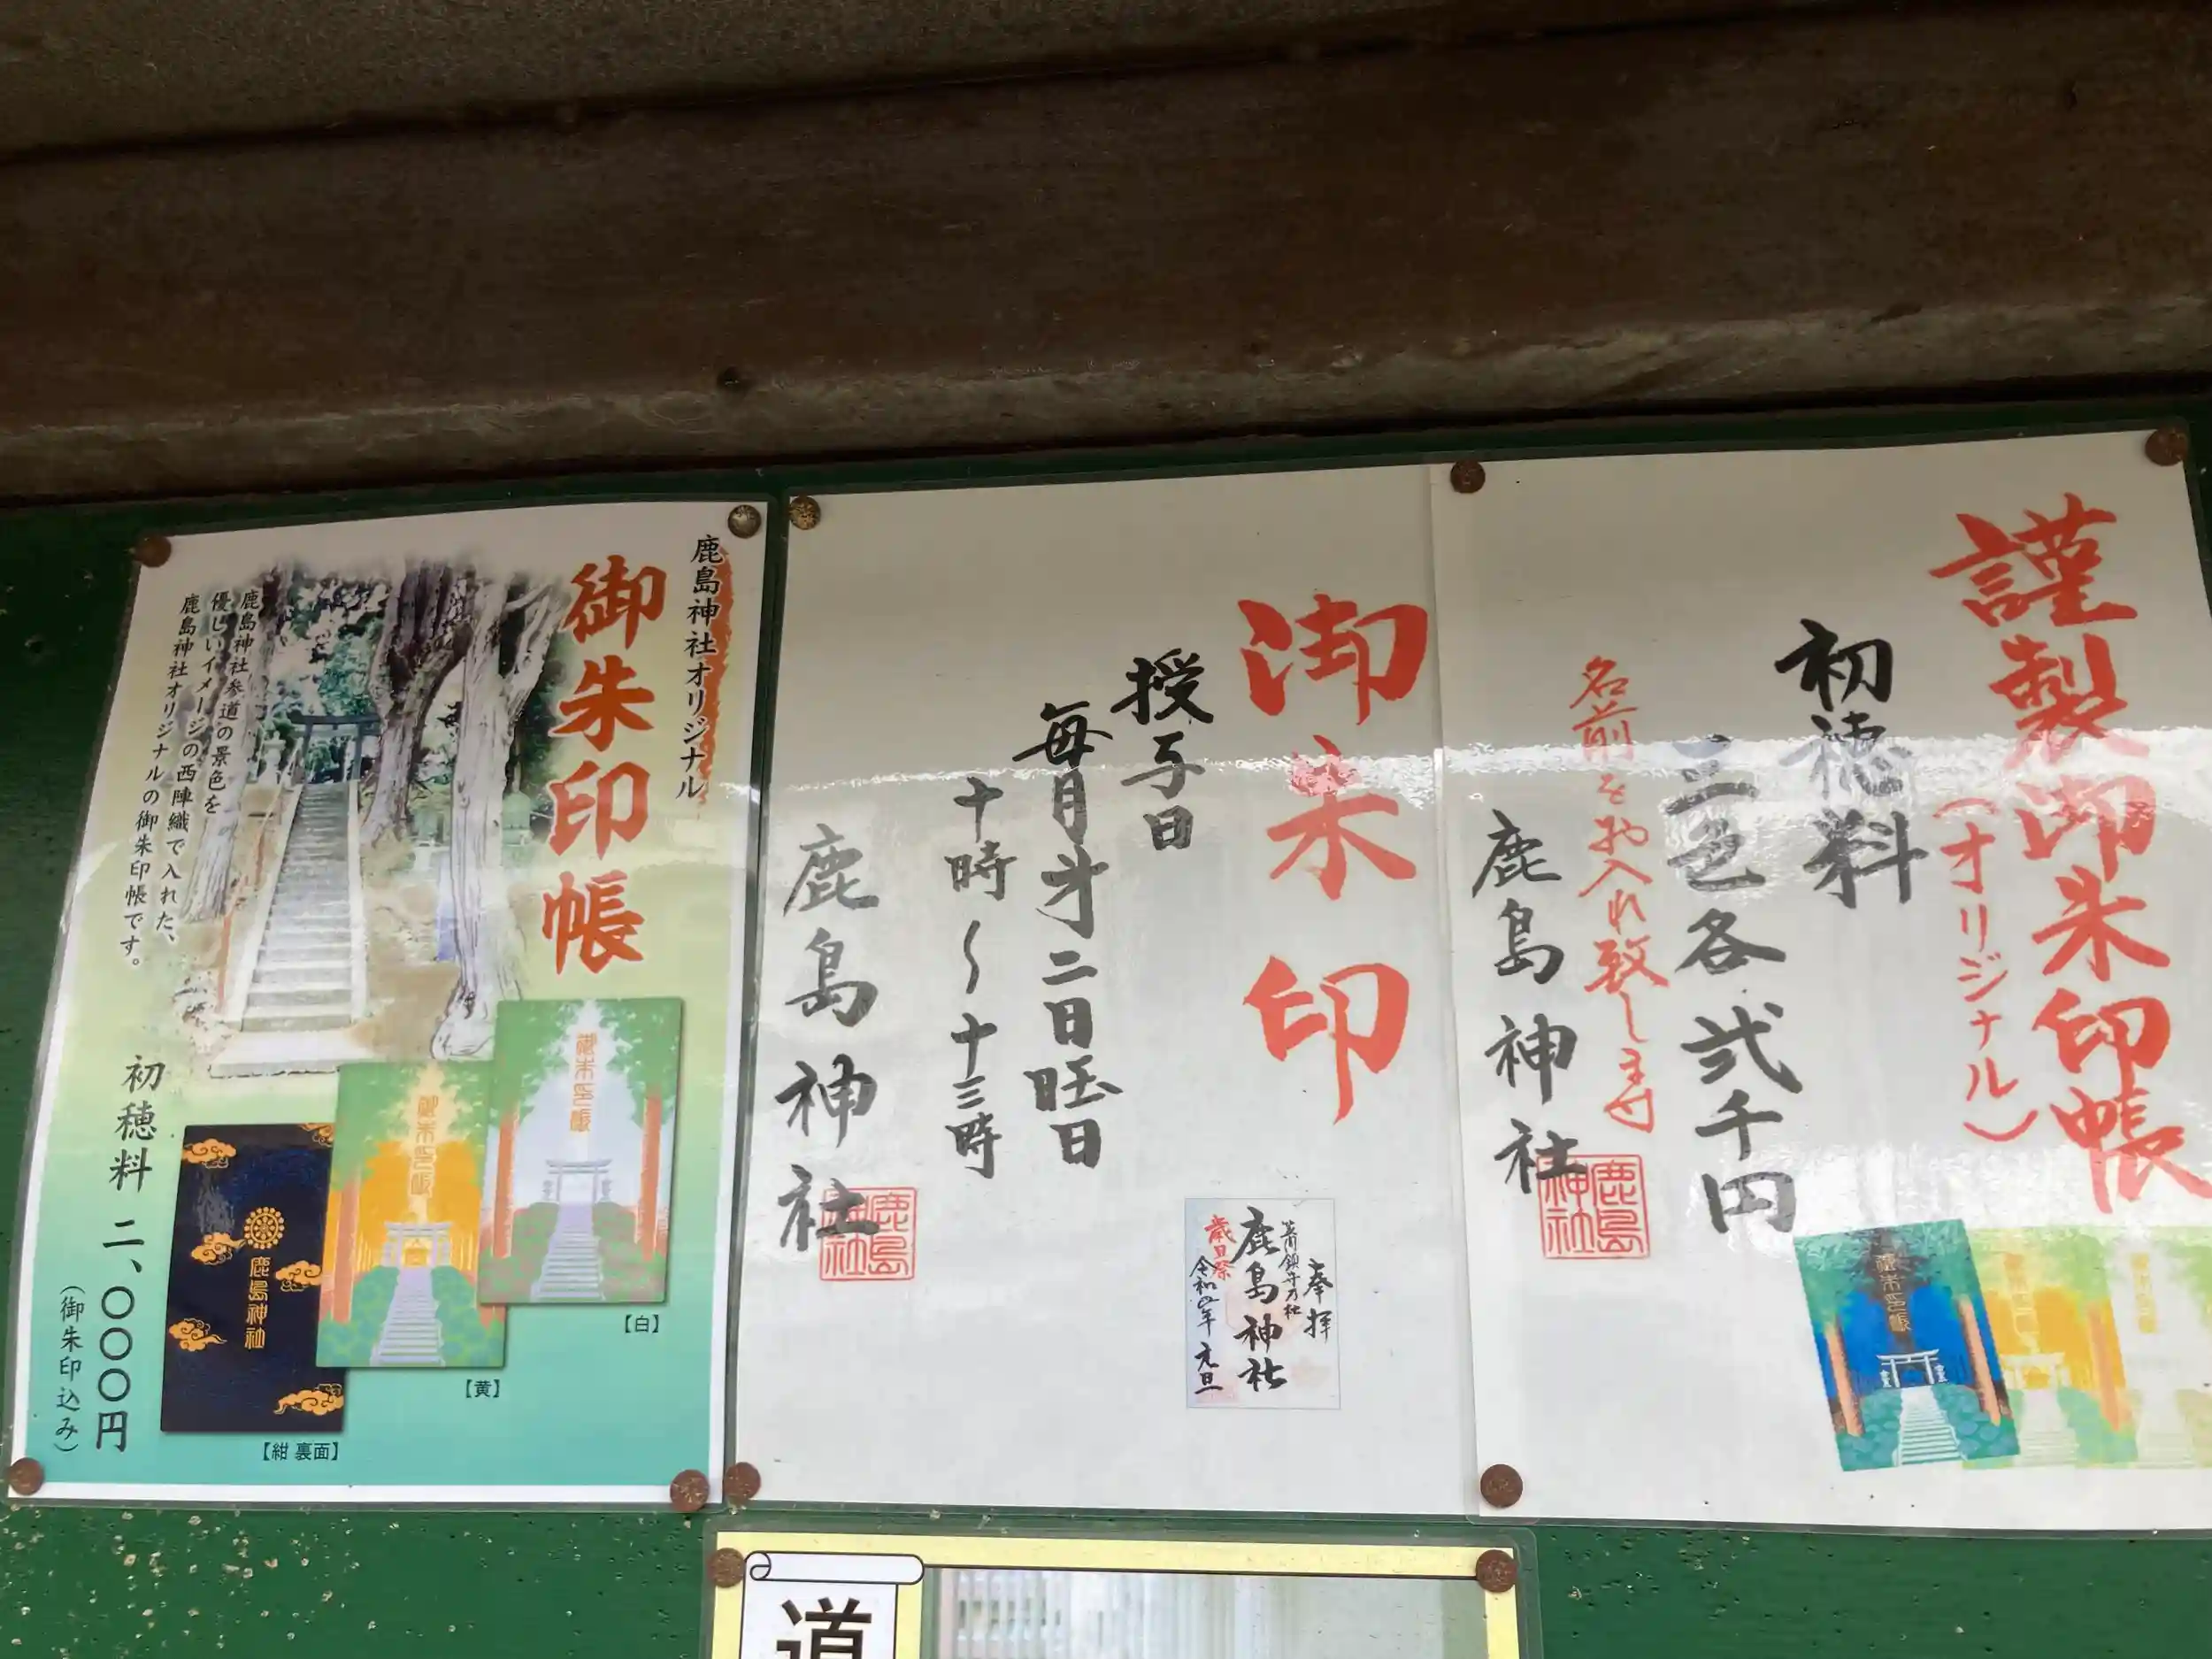 謹製御朱印帳
(オリジナル)
初穂料
三色各弐千円
名前をお入れ致します
鹿島神社
鹿島
神社
御朱印
授与日
毎月第二日曜日
十時〜十三時
鹿島神社
鹿島
神社
奉拝
鹿島神社
歳旦祭
令和四年元旦
鹿島神社オリジナル
御朱印帳
鹿島神社参道の景色を
優しいイメージの西陣織で入れた、
鹿島神社オリジナルの御朱印帳です。
初穂料 二、〇〇〇円
(御朱印込み)
御朱印帳
【白】
御朱印帳
【黄】
鹿島神社
【紺 裏面】
御朱印帳
道